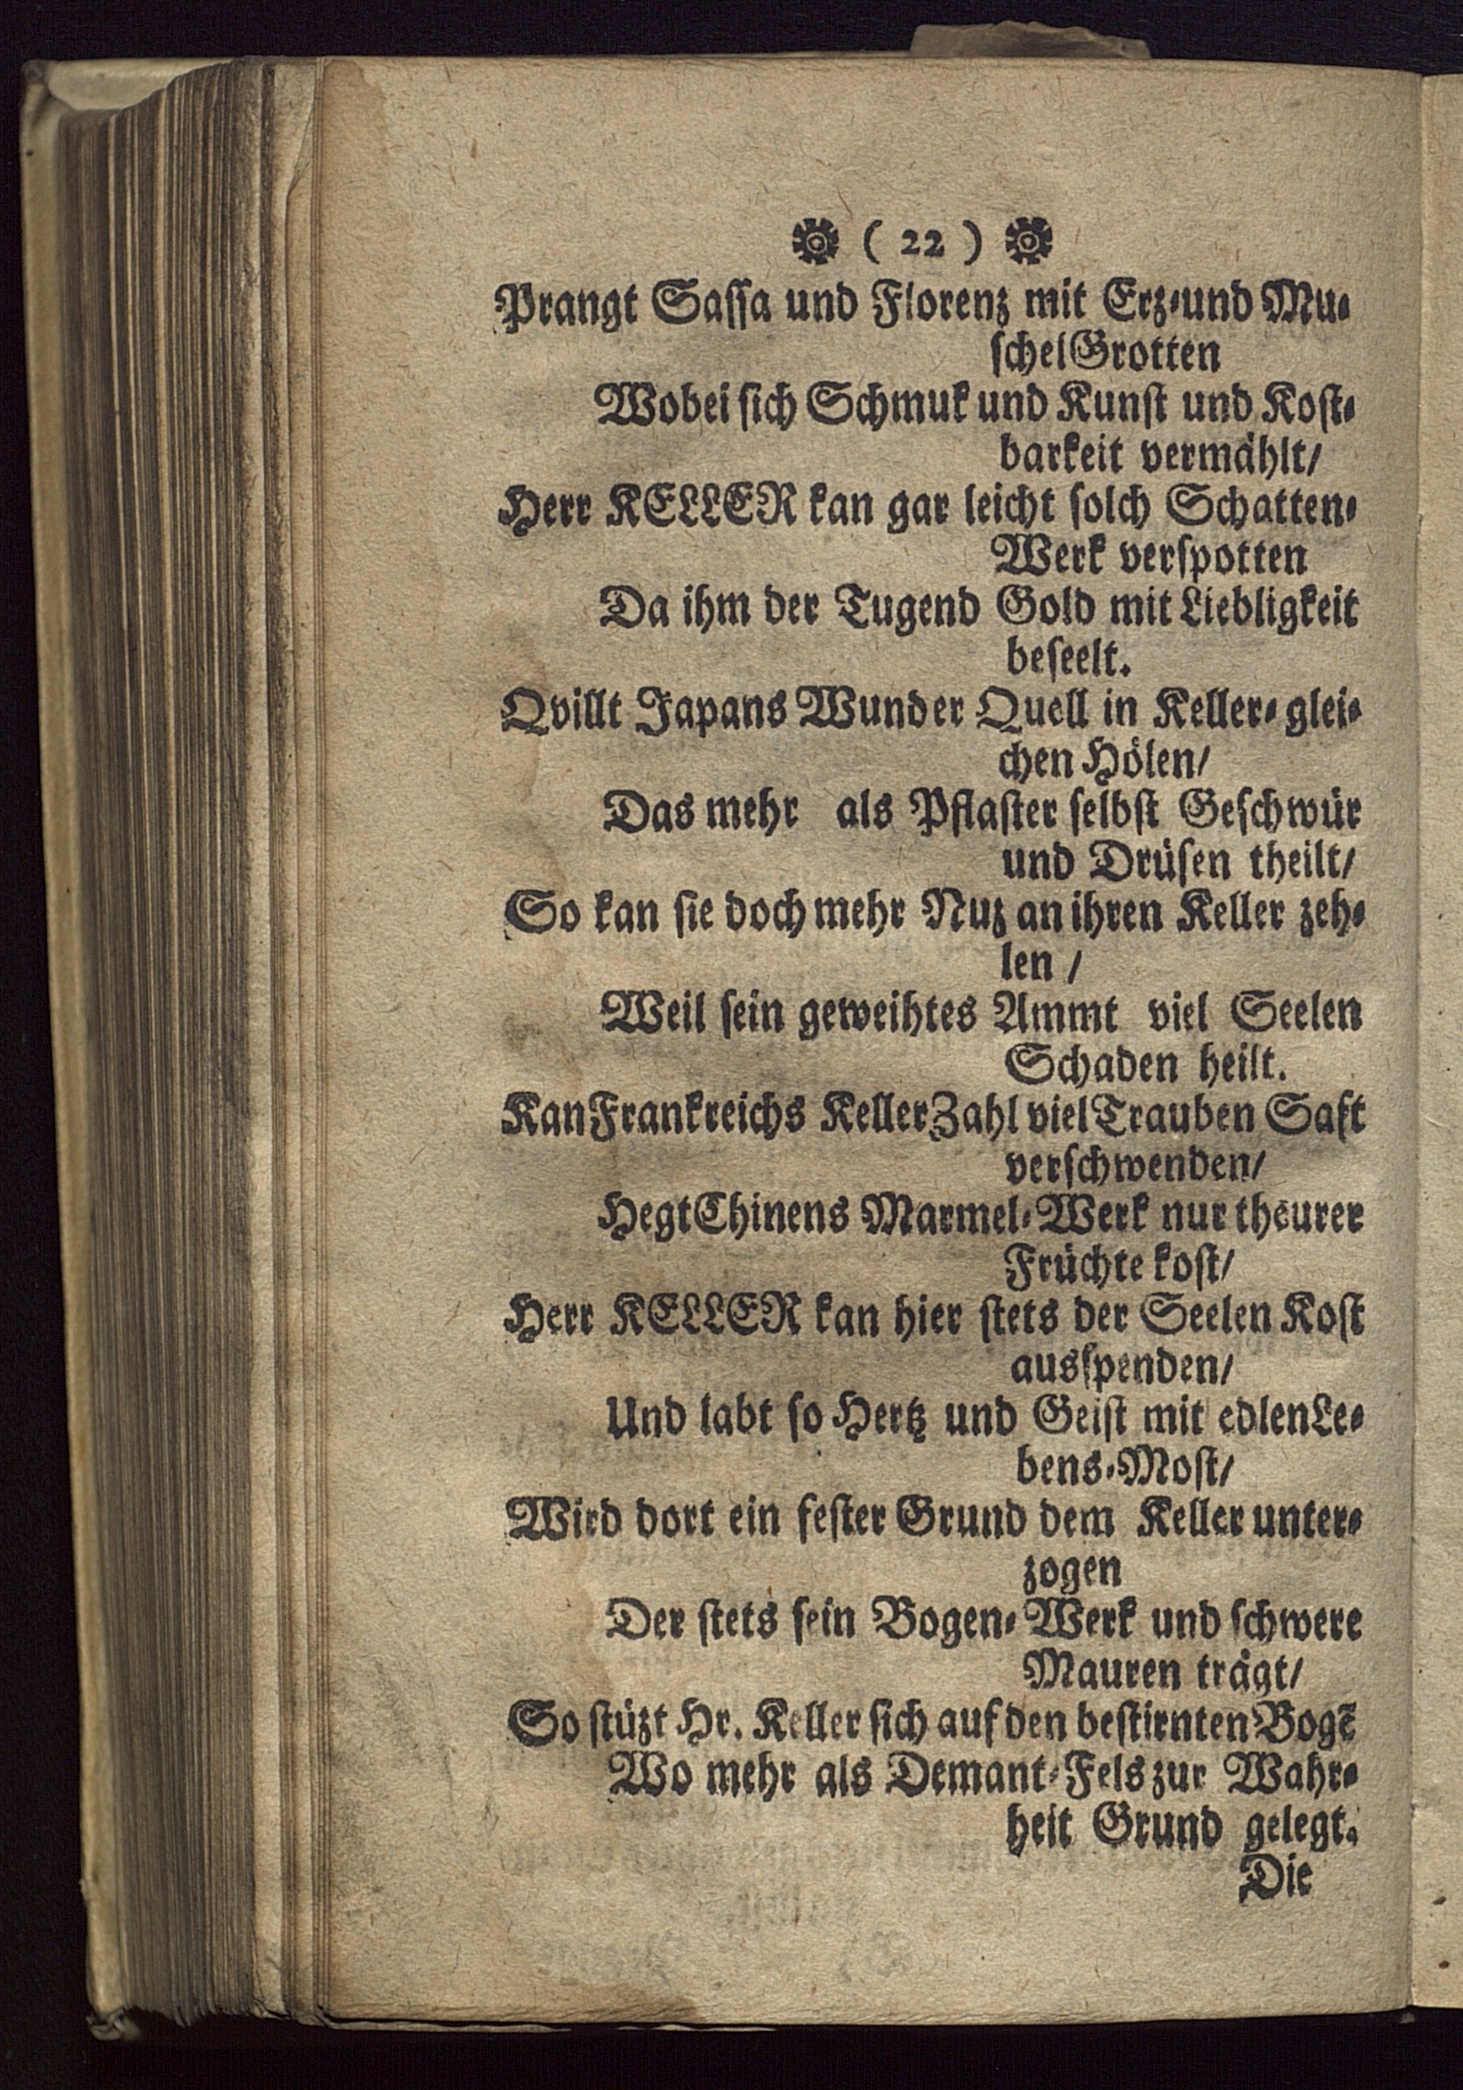 ( 22 )
Prangt Saſſa und Florenz mit Erz⸗und Mu⸗
ſchelGrotten
Wobei ſich Schmuk und Kunſt und Koſt⸗
barkeit vermählt/
Herr KELLER kan gar leicht ſolch Schatten⸗
Werk verſpotten
Da ihm der Tugend Gold mit Liebligkeit
beſeelt.
Qvillt Japans Wunder Quell in Keller⸗ glei⸗
chen Hölen/
Das mehr als Pflaſter ſelbſt Geſchwür
und Drüſen theilt/
So kan ſie doch mehr Nuz an ihren Keller zeh⸗
len /
Weil ſein geweihtes Ammt viel Seelen
Schaden heilt.
Kan Frankreichs KellerZahl viel Trauben Saft
verſchwenden/
Hegt Chinens Marmel⸗Werk nur theurer
Früchte koſt/
Herr KELLER kan hier ſtets der Seelen Koſt
ausſpenden/
Und labt ſo Hertz und Geiſt mit edlen Le⸗
bens⸗Moſt/
Wird dort ein feſter Grund dem Keller unter⸗
zogen
Der ſtets ſein Bogen⸗ Werk und ſchwere
Mauren trägt/
So ſtüzt Hr. Keller ſich auf den beſtirnten Bogē
Wo mehr als Demant⸗Fels zur Wahr⸗
heit Grund gelegt.
Die